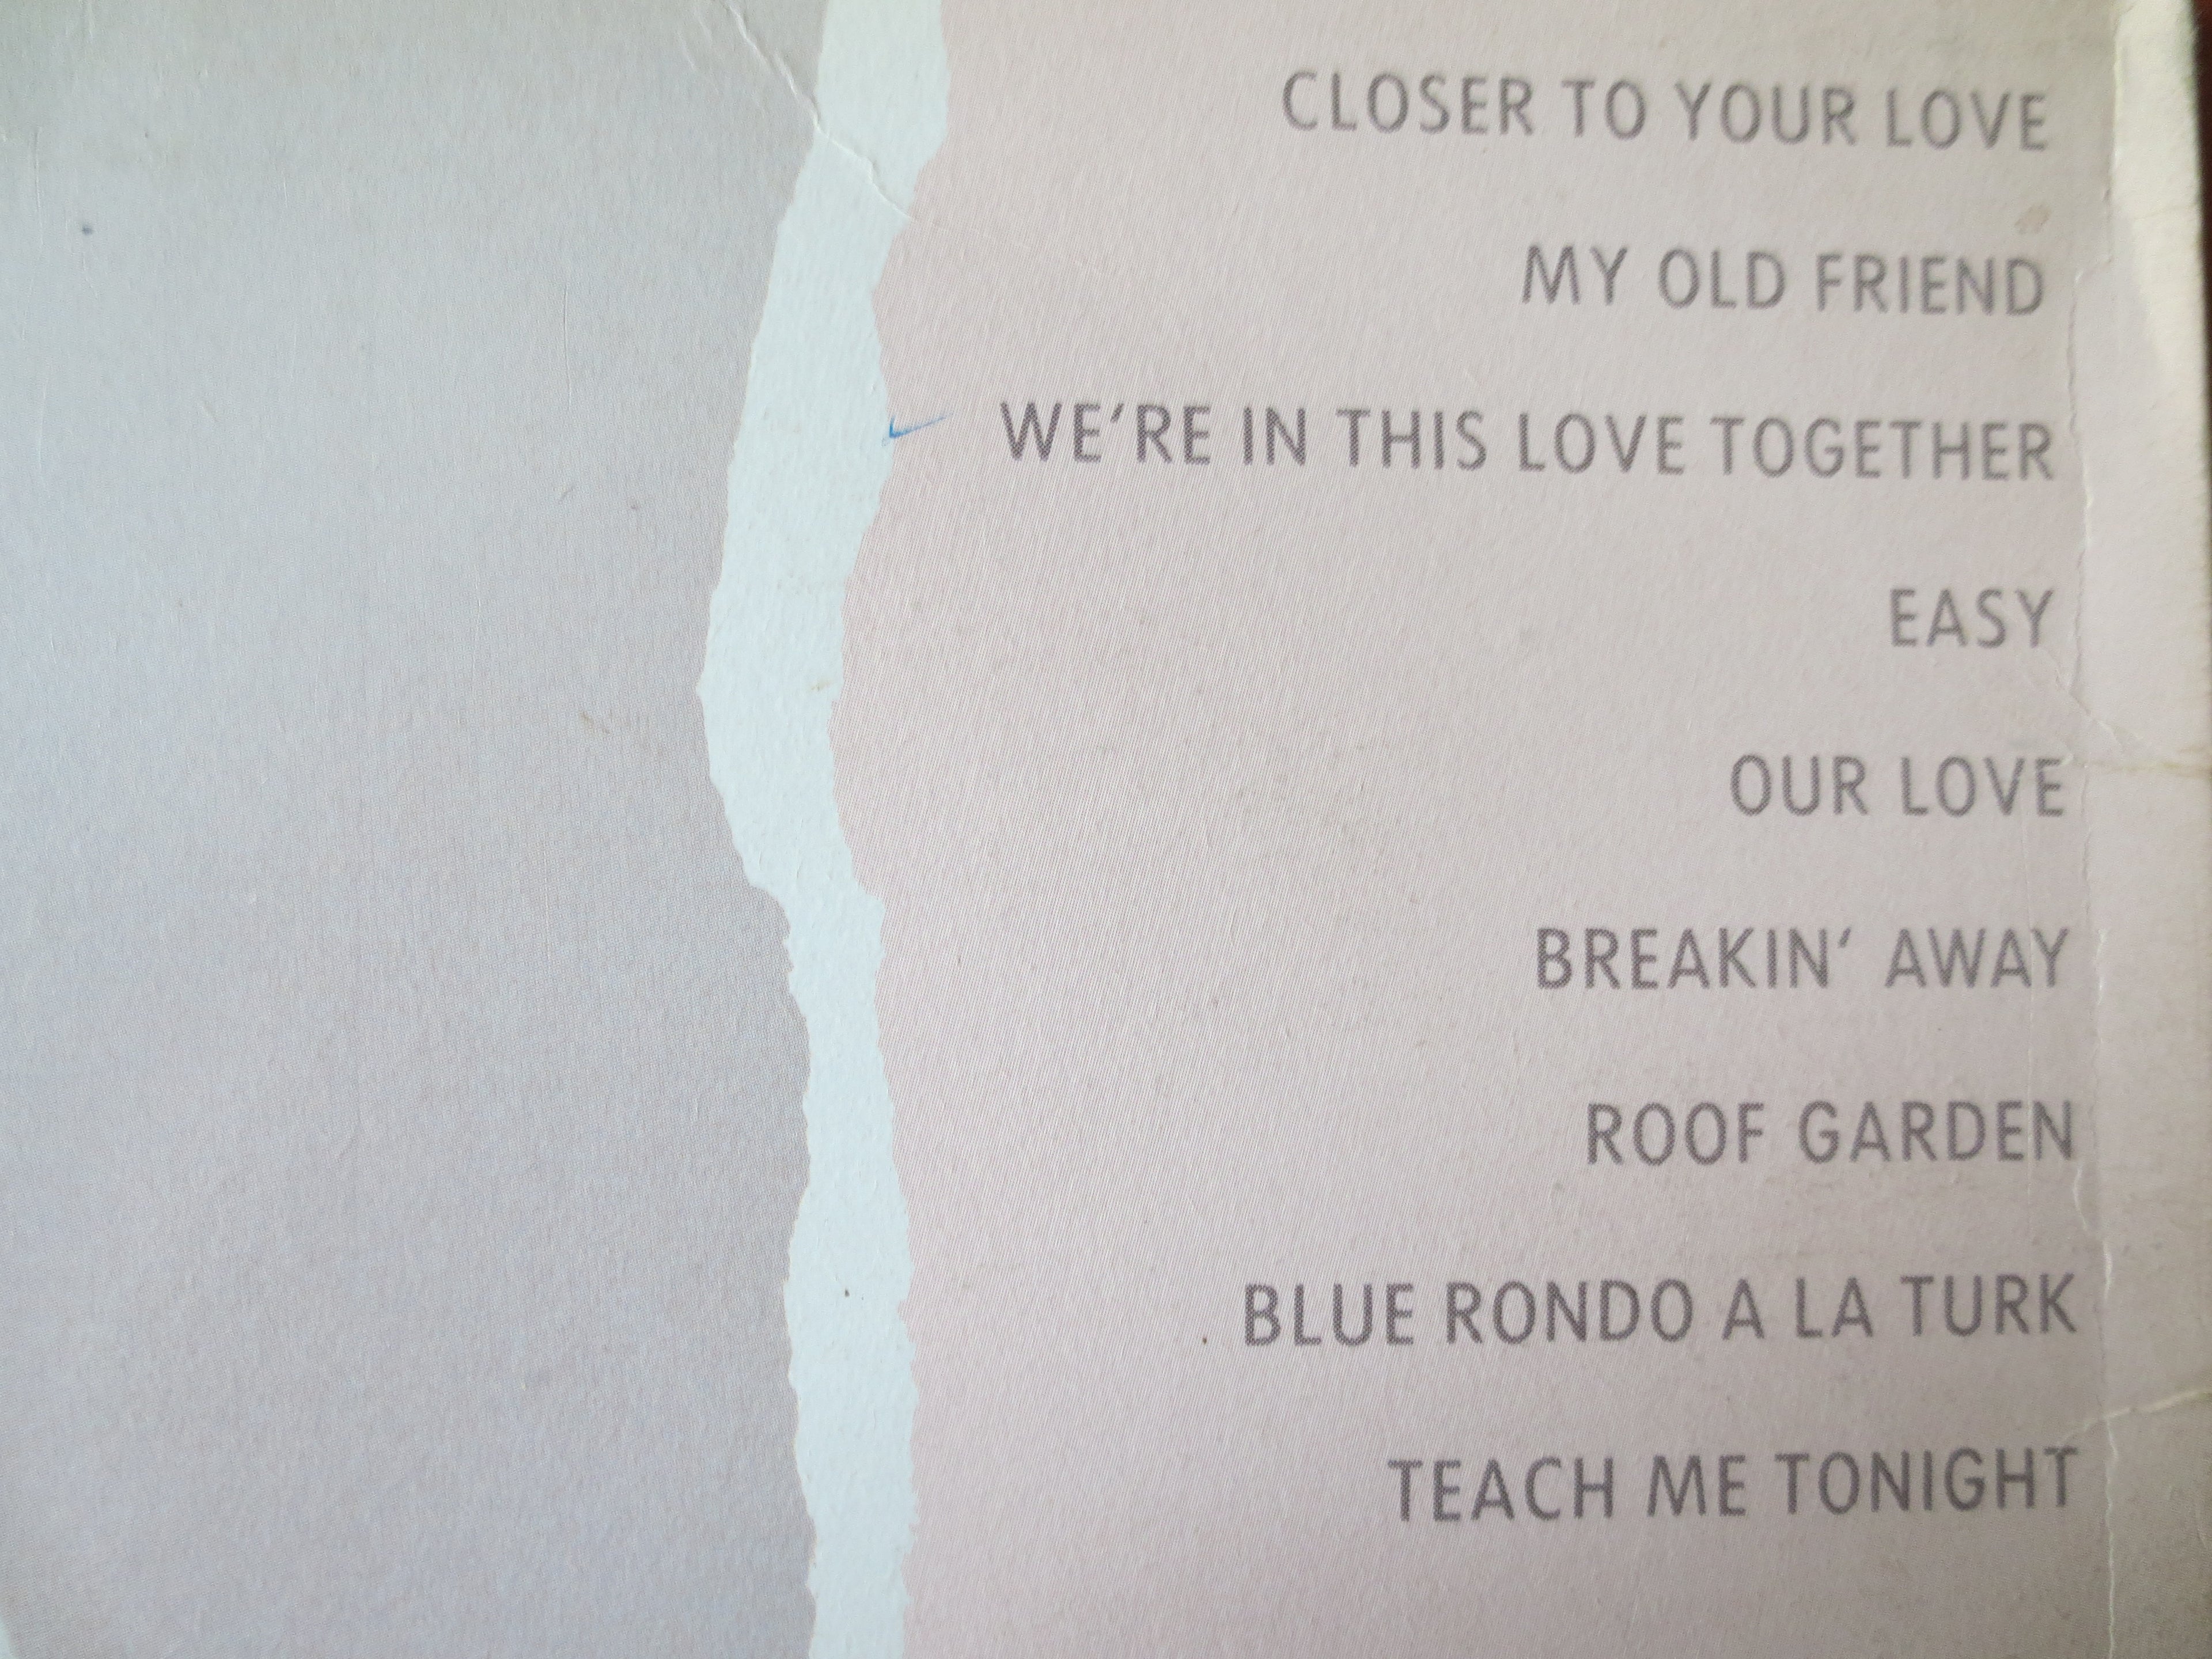 CLOSER TO YOUR LOVE
MY OLD FRIEND
WE'RE IN THIS LOVE TOGETHER
EASY
OUR LOVE
BREAKIN' AWAY
ROOF GARDEN
BLUE RONDO A LA TURK
TEACH ME TONIGHT